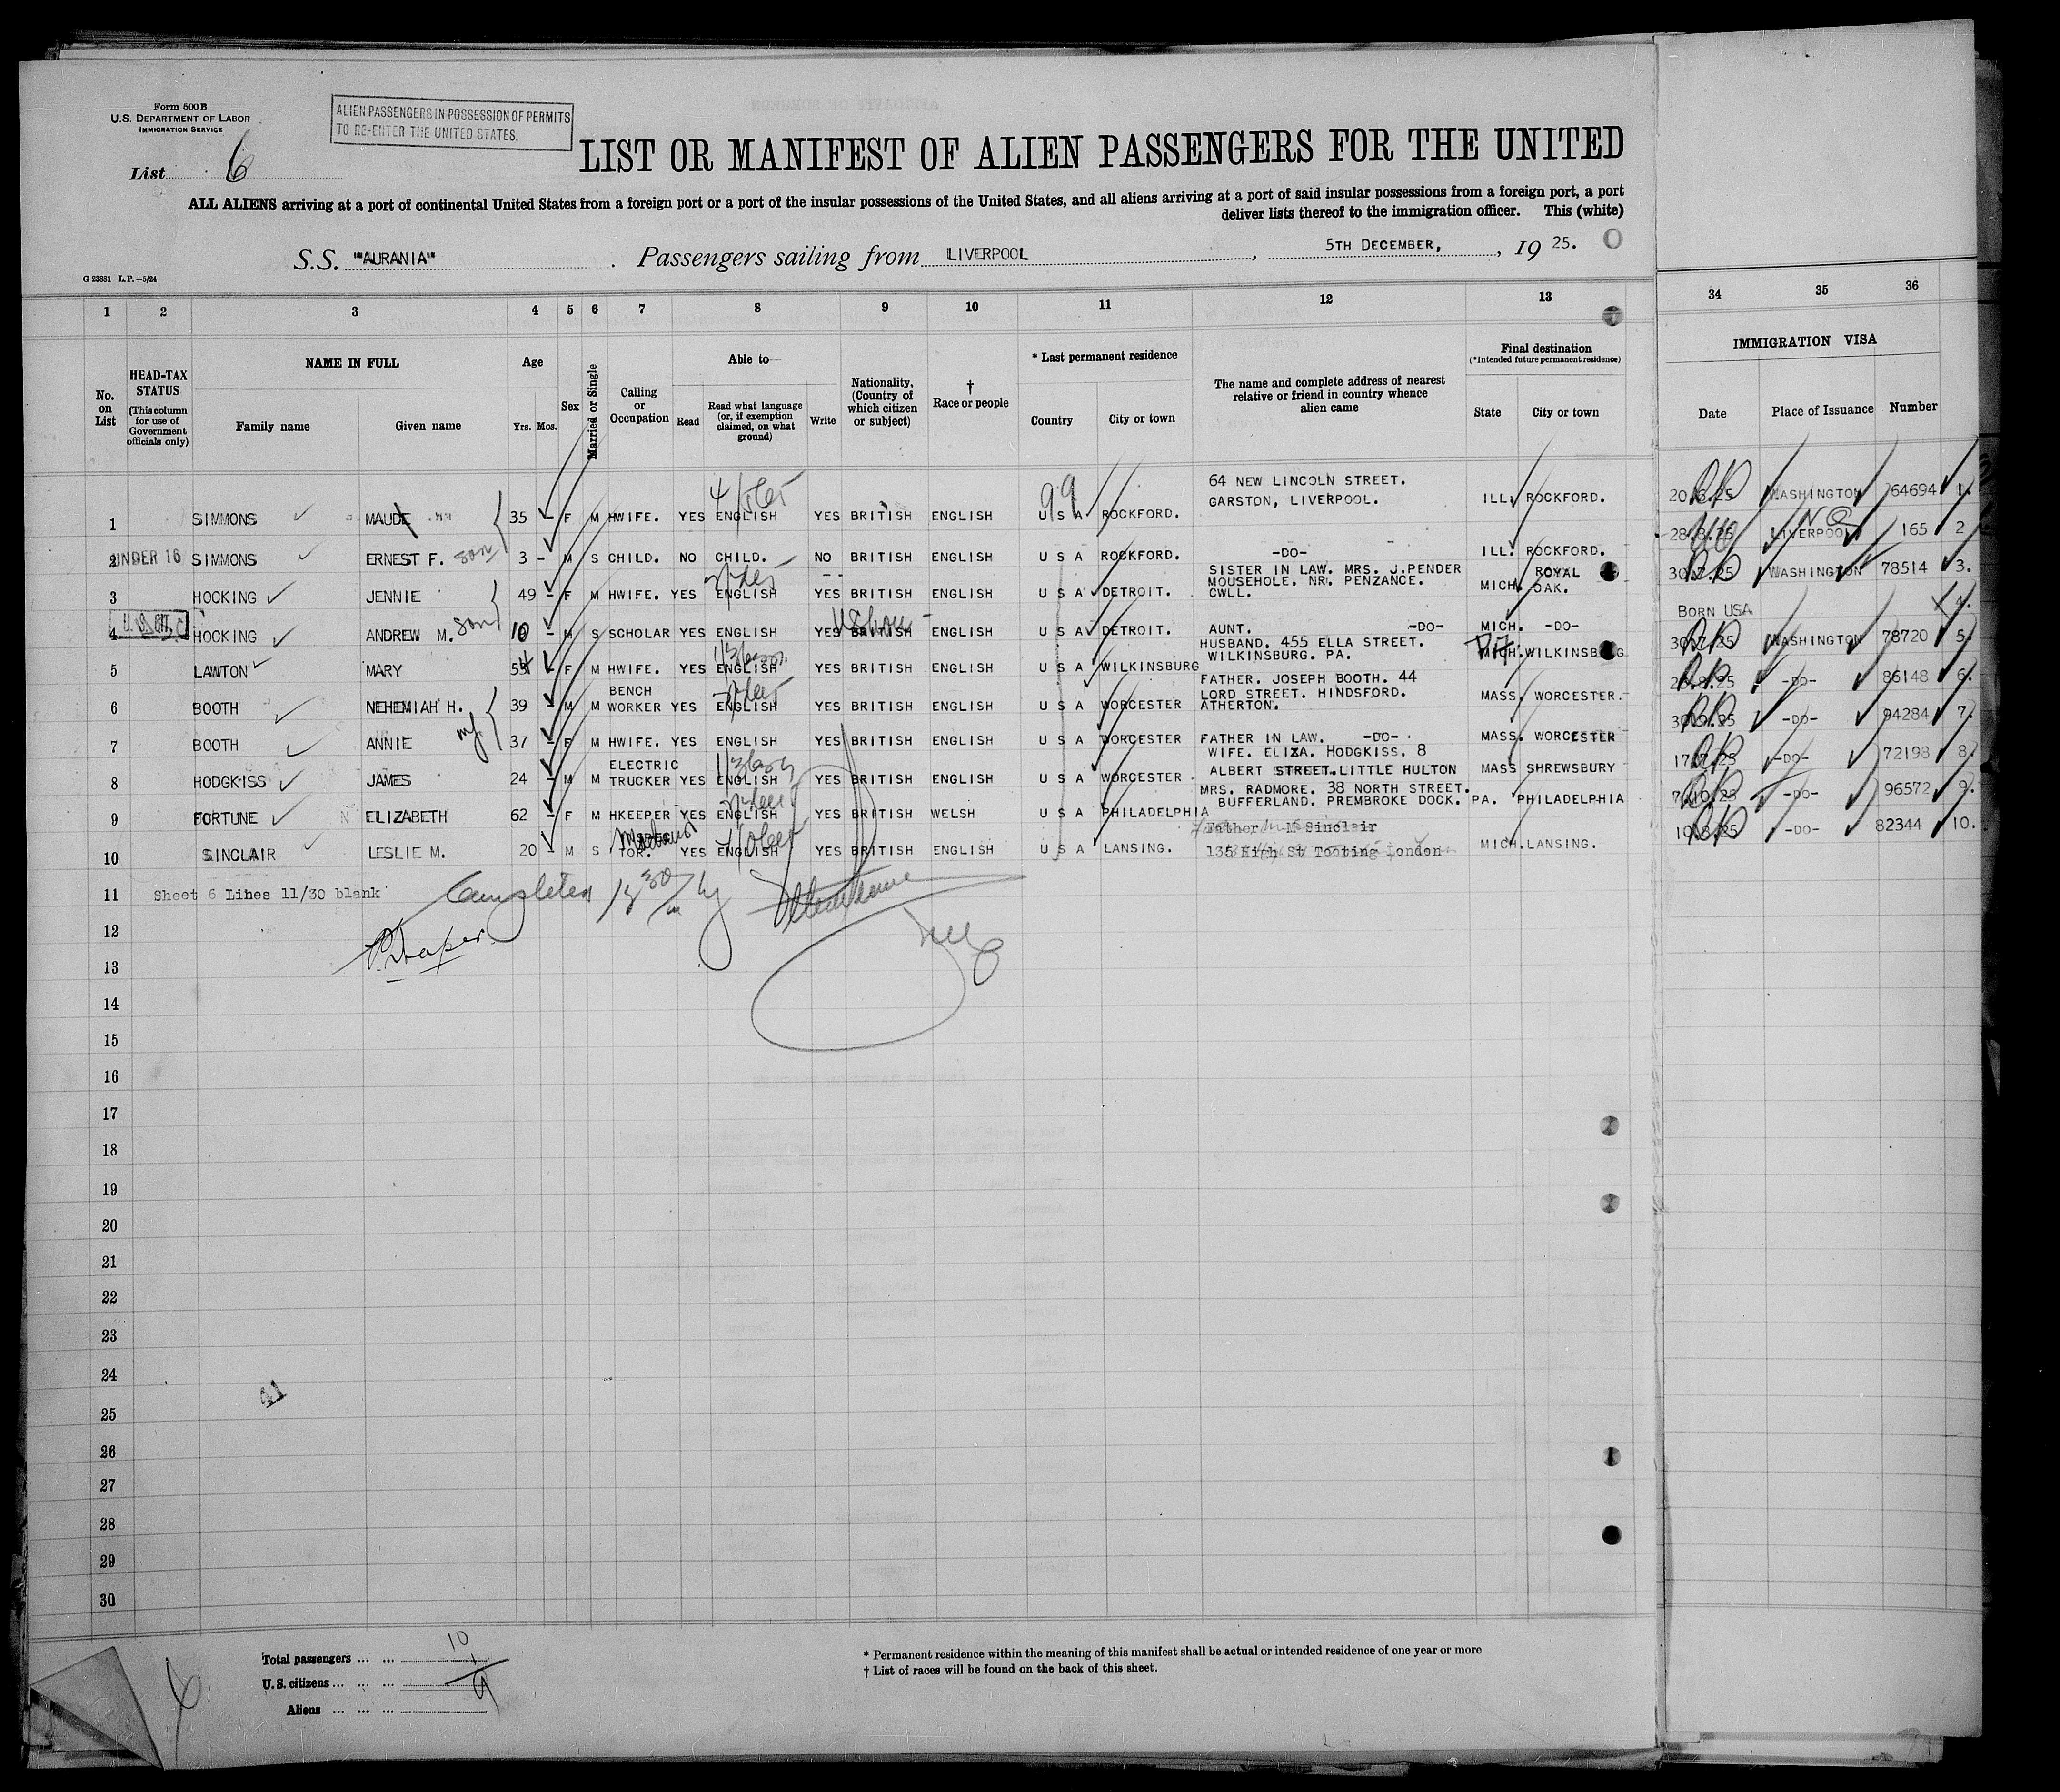 Form 500B
U.S. DEPARTMENT OF LABOR
IMMIGRATION SERVICE
ALIEN PASSENGERS IN POSSESSION OF PERMITS
TO RE-ENTER THE UNITED STATES.
List 6
LIST OR MANIFEST OF ALIEN PASSENGERS FOR THE UNITED
ALL ALIENS arriving at a port of continental United States from a foreign port or a port of the insular possessions of the United States, and all aliens arriving at a port of said insular possessions from a foreign port, a port
deliver lists thereof to the immigration officer. This (white)
S.S. "AURANIA" Passengers sailing from LIVERPOOL, 5TH DECEMBER, 1925.
G 23881 L.P.—5/24
1 2 3 4 5 6 7 8 9 10 11 12 13 34 35 36
No. on List
HEAD-TAX STATUS
(This column for use of Government officials only)
NAME IN FULL
Family name Given name
Age
Yrs. Mos.
Sex
Married or Single
Calling or Occupation
Able to
Read
Read what language (or, if exemption claimed, on what ground)
Write
Nationality, (Country of which citizen or subject)
† Race or people
* Last permanent residence
Country City or town
The name and complete address of nearest relative or friend in country whence alien came
Final destination
(*Intended future permanent residence)
State City or town
IMMIGRATION VISA
Date Place of Issuance Number
64 NEW LINCOLN STREET.
1 SIMMONS MAUDE 35 - F M HWIFE. YES ENGLISH YES BRITISH ENGLISH U S A ROCKFORD. GARSTON, LIVERPOOL. ILL. ROCKFORD. WASHINGTON 64694 1.
2 UNDER 16 SIMMONS ERNEST F. son 3 - M S CHILD. NO CHILD. NO BRITISH ENGLISH U S A ROCKFORD. -DO- ILL. ROCKFORD. 28.8.25 LIVERPOOL 165 2
SISTER IN LAW. MRS. J.PENDER
MOUSEHOLE. NR. PENZANCE.
3 HOCKING JENNIE 49 - F M HWIFE. YES ENGLISH YES BRITISH ENGLISH U S A DETROIT. CWLL. MICH. ROYAL OAK. 30.7.25 WASHINGTON 78514 3.
4 HOCKING ANDREW M. son 10 - M S SCHOLAR YES ENGLISH YES BRITISH ENGLISH U S A DETROIT. AUNT. -DO- MICH. -DO- BORN USA 4.
HUSBAND. 455 ELLA STREET.
5 LAWTON MARY F M HWIFE. YES ENGLISH YES BRITISH ENGLISH U S A WILKINSBURG WILKINSBURG. PA. MICH. WILKINSBURG 30.7.25 WASHINGTON 78720 5.
FATHER. JOSEPH BOOTH. 44
LORD STREET. HINDSFORD.
6 BOOTH NEHEMIAH H. 39 - M M BENCH WORKER YES ENGLISH YES BRITISH ENGLISH U S A WORCESTER ATHERTON. MASS. WORCESTER. -DO- 86148 6.
7 BOOTH ANNIE 37 - F M HWIFE. YES ENGLISH YES BRITISH ENGLISH U S A WORCESTER FATHER IN LAW. -DO- MASS. WORCESTER -DO- 94284 7.
WIFE. ELIZA. HODGKISS. 8
8 HODGKISS JAMES 24 - M M ELECTRIC TRUCKER YES ENGLISH YES BRITISH ENGLISH U S A WORCESTER. ALBERT STREET. LITTLE HULTON MASS SHREWSBURY -DO- 72198 8.
MRS. RADMORE. 38 NORTH STREET.
9 FORTUNE ELIZABETH 62 - F M HKEEPER YES ENGLISH YES BRITISH WELSH U S A PHILADELPHIA BUFFERLAND. PREMBROKE DOCK. PA. PHILADELPHIA -DO- 96572 9.
Father M Sinclair
10 SINCLAIR LESLIE M. 20 - M S TOR. YES ENGLISH YES BRITISH ENGLISH U S A LANSING. 135 High St Tooting London MICH. LANSING. -DO- 82344 10.
11 Sheet 6 Lines 11/30 blank Completed
12
13 Draper
14
15
16
17
18
19
20
21
22
23
24
25
26
27
28
29
30
Total passengers ... ... 10
U.S. citizens ... ... ... 1
Aliens ... ... ... 9
* Permanent residence within the meaning of this manifest shall be actual or intended residence of one year or more
† List of races will be found on the back of this sheet.
6